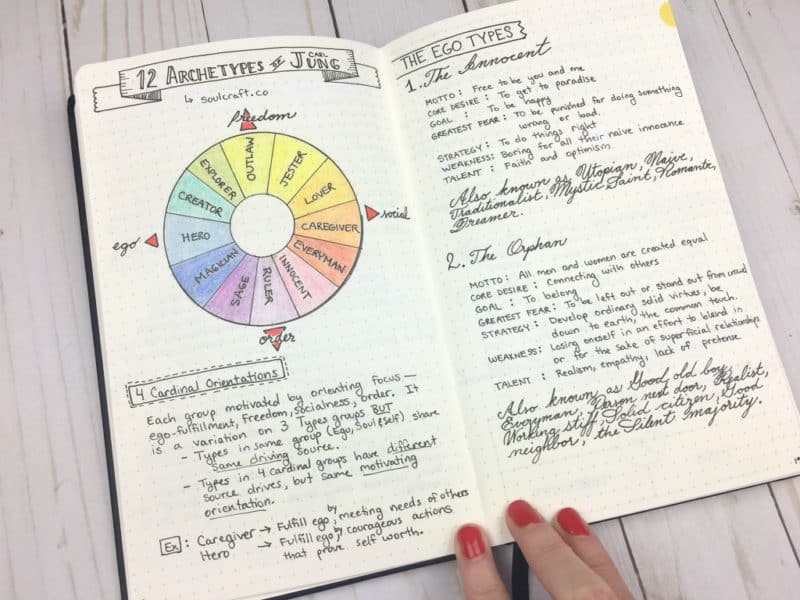 12 ARCHETYPES OF CARL JUNG
↳ soulcraft.co
freedom
OUTLAW
JESTER
LOVER
CAREGIVER
EVERYMAN
INNOCENT
RULER
SAGE
MAGICIAN
HERO
CREATOR
EXPLORER
social
order
ego
4 CARDINAL ORIENTATIONS
Each group motivated by orienting focus—
ego-fulfillment, freedom, socialness, order. It
is a variation on 3 Types groups BUT
- Types in same group (Ego, Soul & self) share
same driving source.
- Types in 4 cardinal groups have different
source drives, but same motivating
orientation.
Ex: Caregiver → Fulfill ego by meeting needs of others
Hero → Fulfill ego by courageous actions
that prove self worth.
THE EGO TYPES
1. The Innocent
MOTTO: Free to be you and me
CORE DESIRE: To get to paradise
GOAL: To be happy
GREATEST FEAR: To be punished for doing something
wrong or bad.
STRATEGY: To do things right
WEAKNESS: Boring for all their naive innocence
TALENT: Faith and optimism.
Also known as, Utopian, Naive,
Traditionalist, Mystic Saint, Romantic,
Dreamer.
2. The Orphan
MOTTO: All men and women are created equal
CORE DESIRE: Connecting with others
GOAL: To belong
GREATEST FEAR: To be left out or stand out from crowd
STRATEGY: Develop ordinary solid virtues, be
down to earth, the common touch.
WEAKNESS: Losing oneself in an effort to blend in
or for the sake of superficial relationships
TALENT: Realism, empathy, lack of pretense
Also known as Good old boy,
Everyman, Person next door, Realist,
Working stiff, Solid citizen, Good
neighbor, the Silent Majority.